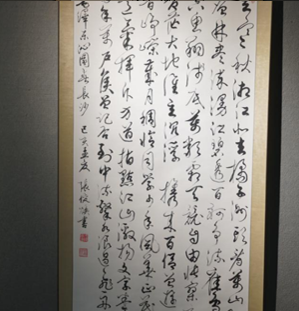 立寒秋湘江北去橘子洲头看萬山
层林尽染漫江碧透百舸争流鹰
鱼翔浅底萬類霜天竞自由怅寥
茫大地谁主沉浮 携来百侣曾遊
昔峥嵘岁月稠恰同学少年风华正茂
生意气挥斥方遒指點江山激扬文字粪
年萬户侯曾记否到中流击水浪遏飞
毛泽东沁园春长沙 己亥 张 书